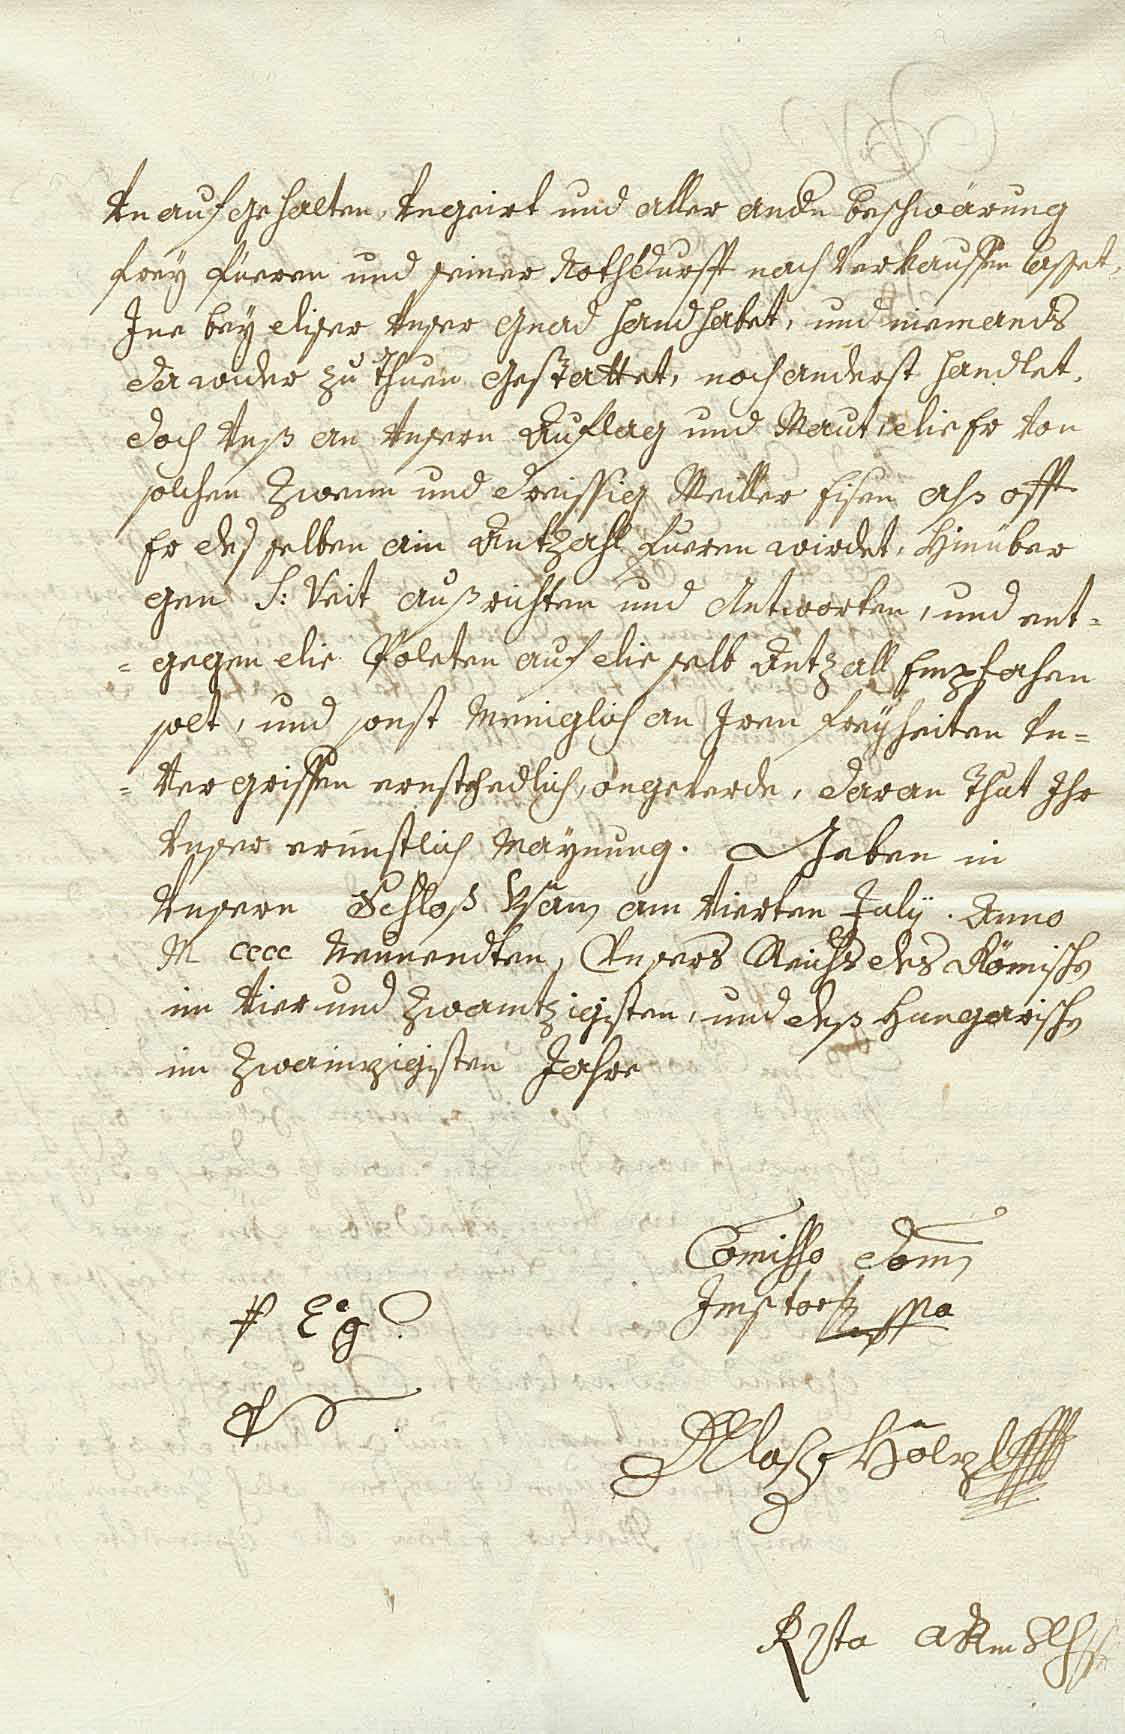 Vnaufgehalten, Vngeirt und aller andn beschwärung
frey füeren und seiner Nothdurfft nach Verkauffen lasset,
Ine bey diser Vnser Gnad handhabet, und niemands
da wider zu Thuen gestattet, noch anderst handlet,
doch Vnß an Vnsern Auflag und Maut, die Er Von
solchen Zwenn und dreissig Meiller Eisen alß offt
Er desselben ain Antzahl füeren wirdet, Hinüber
gen S: Veit außrichten und Antworten, und ent=
=gegen die Poleten auf dieselb Antzall Empfahen
solt, und sonst Meniglich an Iren Freyheiten Un=
=Vergriffen, ongeverde, daran That Ihr
Vnser ernnstlich Maynung. Geben in
Vnsern Schloß am Vierten July. Anno
M cccc Neunendten, Vnsers Reichs des Römisch
im Vier und Zwaintzigisten, und deß Hungarisch
im Zwainzigisten Jahre
Comissio Domj
p Eg